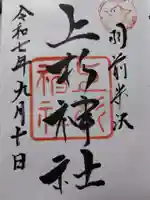 羽前米沢
上杉神社
令和七年九月十日